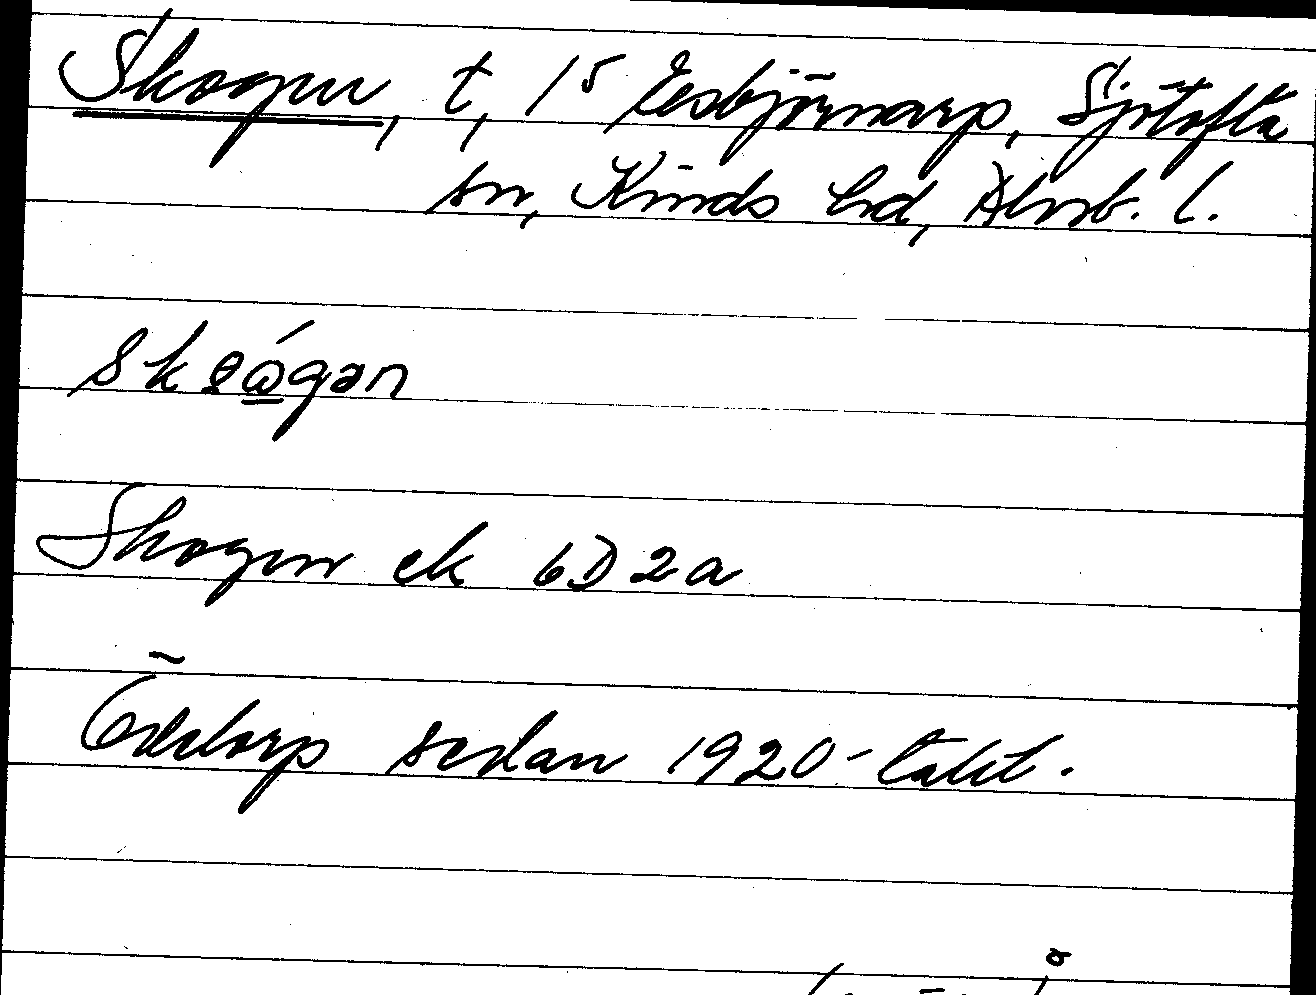 Skogen, t, 15 Esbjörnarp, Sjötofta
sn, Kinds hd, Älvsb. l.
Skogen ek 6D2a
Ödetorp sedan 1920-talet.